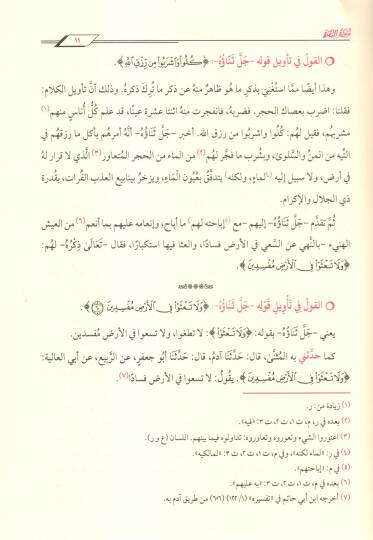 سورة البقرة
١١
القول في تأويل قوله -جَلَّ ثَنَاؤُهُ-: ﴿كُلُوا۟ وَٱشْرَبُوا۟ مِن رِّزْقِ ٱللَّهِ﴾.
وهذا أيضًا ممَّا استُغنيَ بذكرِ ما هو ظاهرٌ منهُ عن ذكر ما تُرِكَ ذكرهُ. وذلك أنَّ تأويل الكلام:
فقلنا: اضرب بعصاك الحجر. فضربهُ، فانفجرت منهُ اثنتا عشرة عينًا، قد علم كُلُّ أُناسٍ منهم(١)
مشربهُم، فقيل لهُم: كُلُوا واشربوا من رزق اللَّه. أخبر -جَلَّ ثَنَاؤُهُ- أنَّهُ أمرهُم بأكل ما رزقهُم في
التِّيه من المنِّ والسَّلوى، وبشُرب ما فجَّر لهُم(٢) من الماء من الحجر المُتعاور(٣) الَّذي لا قرار لهُ
في أرض، ولا سبيل إليه [لماءٍ، ولكنه](٤) يتدفَّقُ بعُيُون المَاءِ، ويزخرُ بينابيع العذب الفُرات، بقُدرة
ذي الجلال والإكرام.
ثُمَّ تقدَّم -جَلَّ ثَنَاؤُهُ- إليهم -مع [إباحته لهم](٥) ما أباح، وإنعامه عليهم بما أنعم(٦) من العيش
الهنيء -بالنَّهي عن السَّعي في الأرض فسادًا، والعثا فيها استكبارًا، فقال -تَعَالَى ذِكْرُهُ- لهُم:
﴿وَلَا تَعْثَوْا۟ فِى ٱلْأَرْضِ مُفْسِدِينَ﴾.
القول في تأويل قوله -جَلَّ ثَنَاؤُهُ-: ﴿وَلَا تَعْثَوْا۟ فِى ٱلْأَرْضِ مُفْسِدِينَ ٦٠﴾.
يعني -جَلَّ ثَنَاؤُهُ- بقوله: ﴿وَلَا تَعْثَوْا۟﴾: لا تطغوا، ولا تسعوا في الأرض مُفسدين.
كما حدَّثني به المُثنَّى، قال: حَدَّثَنَا آدمُ، قال: حَدَّثَنَا أبُو جعفرٍ، عن الرَّبيع، عن أبي العالية:
﴿وَلَا تَعْثَوْا۟ فِى ٱلْأَرْضِ مُفْسِدِينَ﴾. يقُولُ: لا تسعوا في الأرض فسادًا(٧).
(١) زيادة من: ر.
(٢) بعده في ر، م، ت ١، ت ٢، ت ٣: «فيه».
(٣) اعتوروا الشيء وتعوروه وتعاوروه: تداولوه فيما بينهم. اللسان (ع و ر).
(٤) في ر: «الماء لكنه»، وفي م، ت ١، ت ٢، ت ٣: «لمالكيه».
(٥) في م: «إباحتهم».
(٦) بعده في م، ت ١، ت ٢، ت ٣: «به عليهم».
(٧) أخرجه ابن أبي حاتم في «تفسيره» (١/ ١٢٢) (٦٠٦) من طريق آدم به.